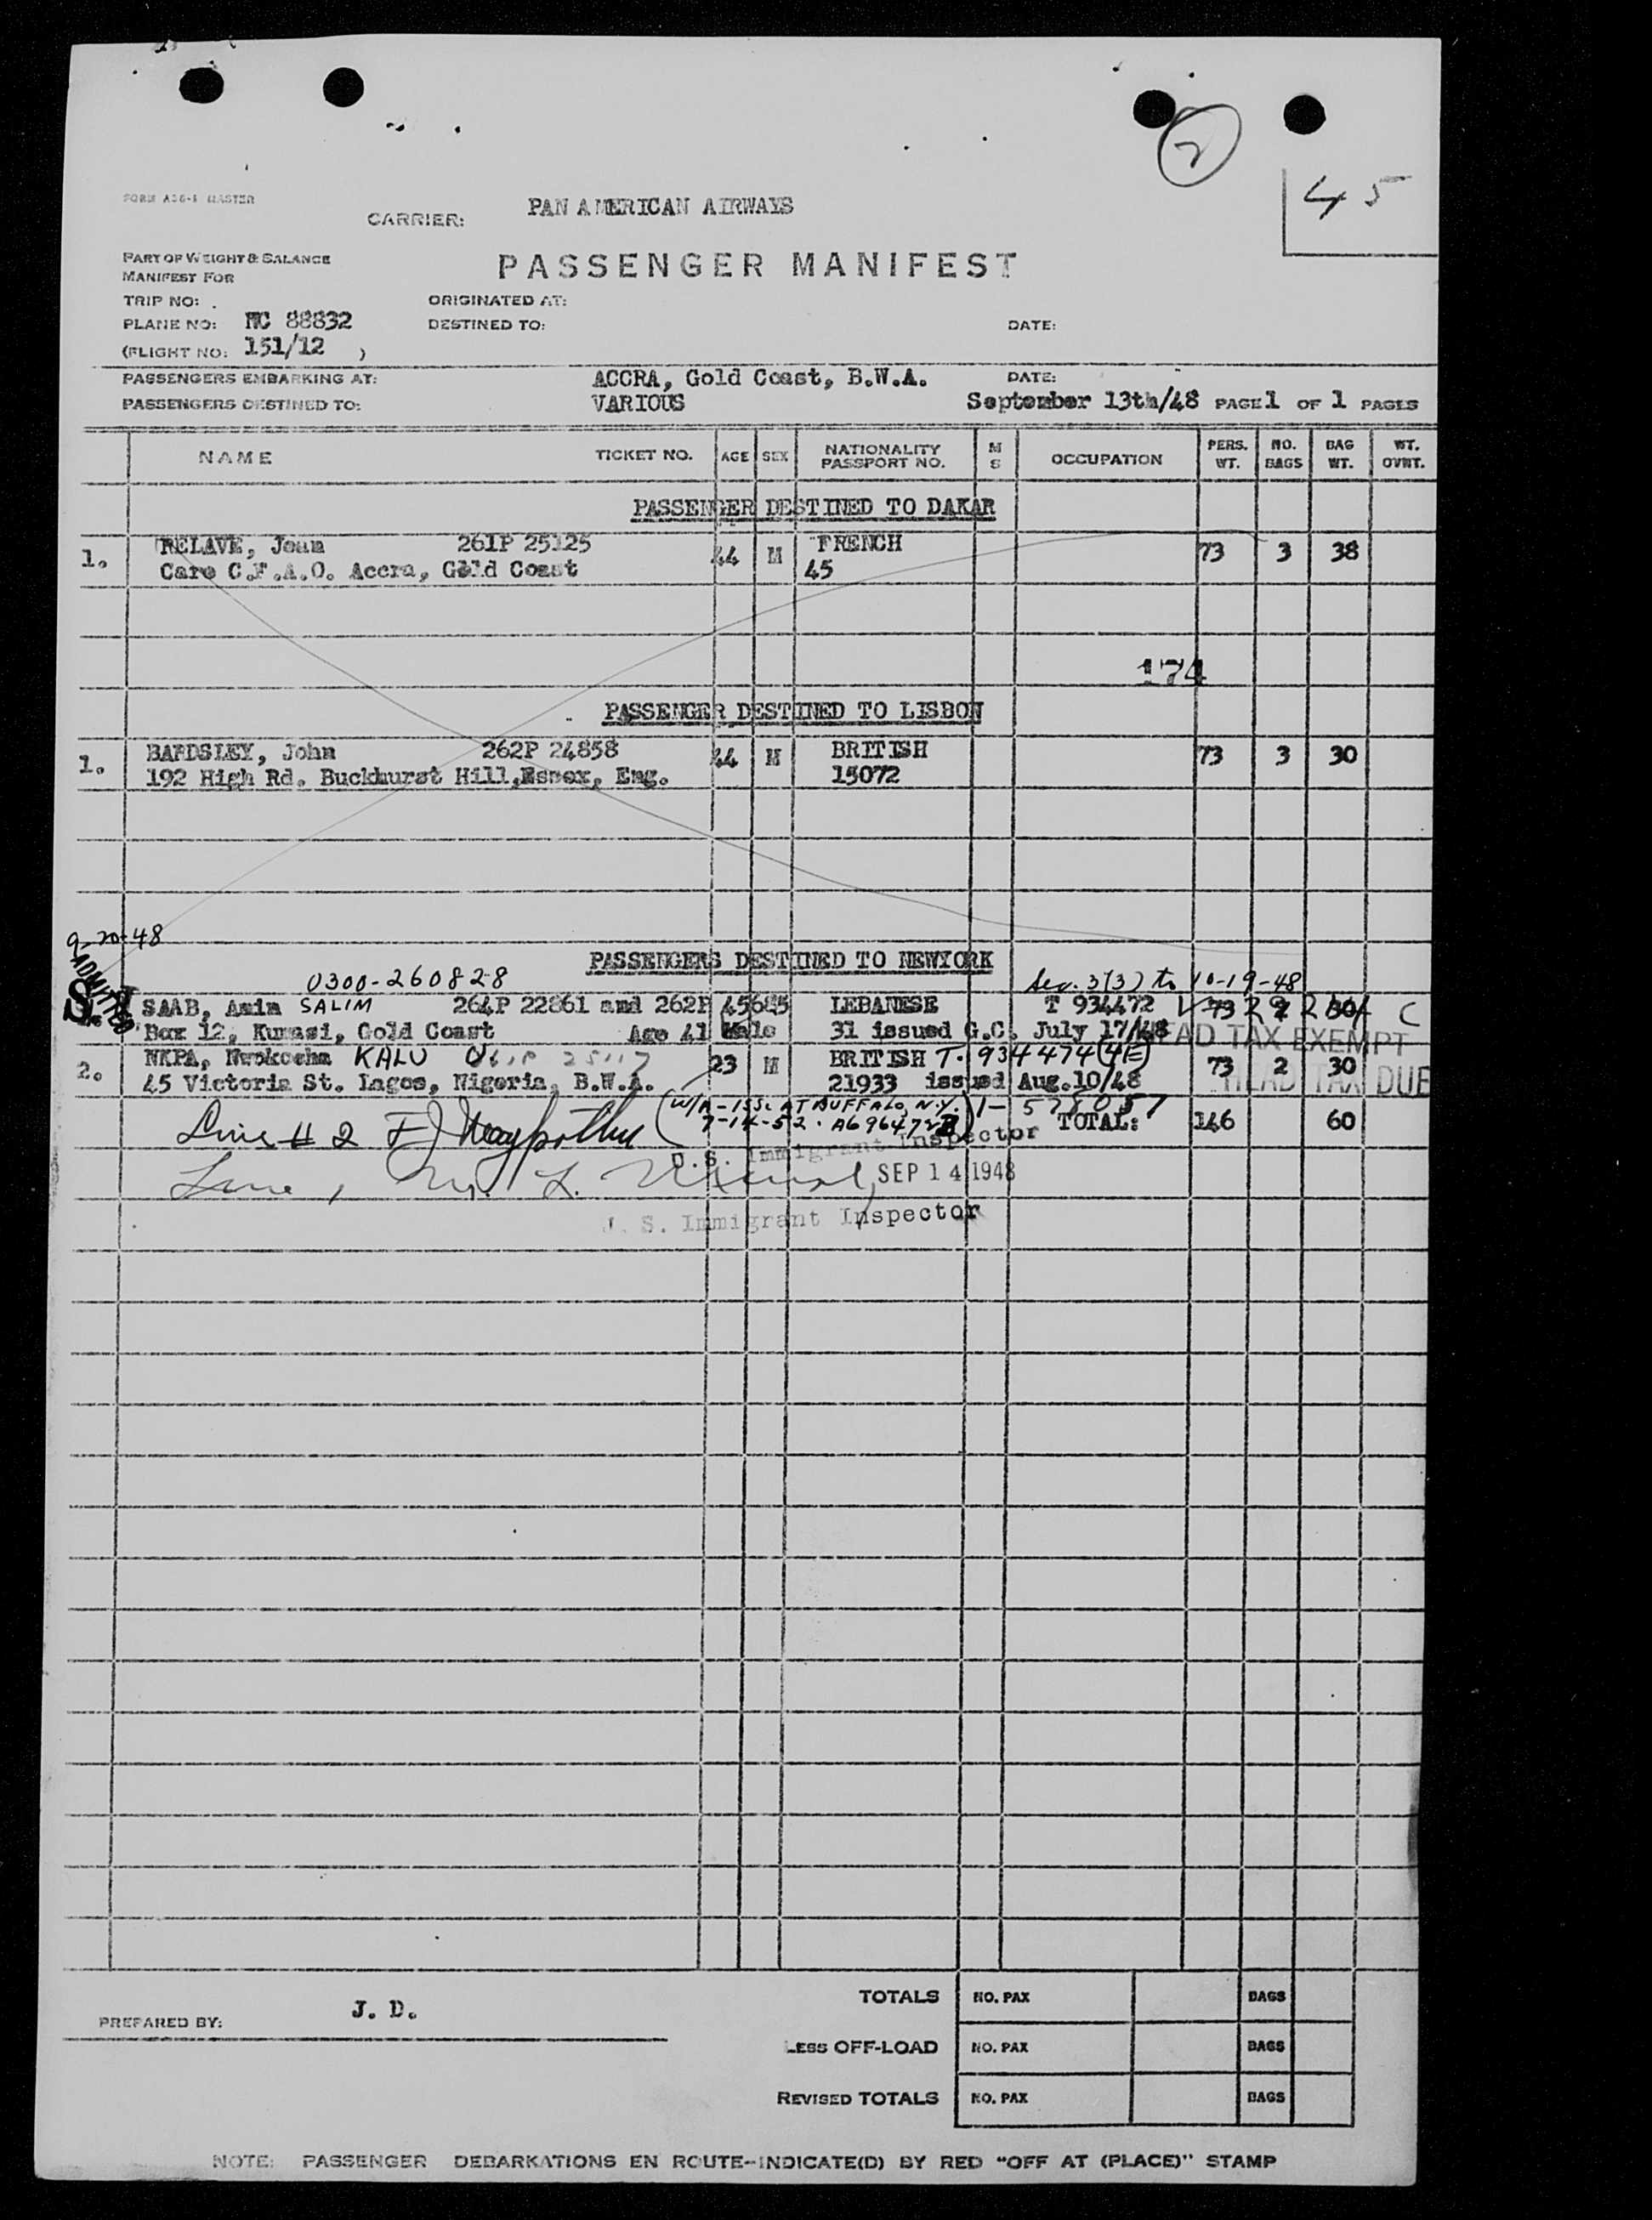 2
45
FORM A36-1 MASTER
CARRIER: PAN AMERICAN AIRWAYS
PART OF WEIGHT & BALANCE
MANIFEST FOR
PASSENGER MANIFEST
TRIP NO: . ORIGINATED AT:
PLANE NO: NC 88832 DESTINED TO: DATE:
(FLIGHT NO: 151/12 )
PASSENGERS EMBARKING AT: ACCRA, Gold Coast, B.W.A. DATE:
PASSENGERS DESTINED TO: VARIOUS September 13th/48 PAGE 1 OF 1 PAGES
NAME TICKET NO. AGE SEX NATIONALITY PASSPORT NO. M S OCCUPATION PERS. WT. NO. BAGS BAG WT. WT. OVWT.
PASSENGER DESTINED TO DAKAR
1. RELAVE, Jean 261P 25125 44 M FRENCH 73 3 38
Care C.F.A.O. Accra, Gold Coast 45
174
PASSENGER DESTINED TO LISBON
1. BARDSLEY, John 262P 24858 44 M BRITISH 73 3 30
192 High Rd. Buckhurst Hill, Essex, Eng. 15072
9-20-48
ADMITTED
PASSENGERS DESTINED TO NEWYORK
0300-260828 Sec. 3(3) to 10-19-48
SAAB, Amin SALIM 264P 22861 and 262P 45685 LEBANESE T 934472 73 2 30
Box 12, Kumasi, Gold Coast Age 41 Male 31 issued G.C. July 17/48
HEAD TAX EXEMPT
2. NKPA, Nwokocha KALU 23 M BRITISH T. 934474 (4E) 73 2 30
45 Victoria St. Lagos, Nigeria, B.W.A. 21933 issued Aug.10/48
HEAD TAX DUE
(W/A - ISS. AT BUFFALO, N.Y. 1-
TOTAL: 146 60
Line # 2
U.S. Immigrant Inspector
Line 1 SEP 14 1948
U. S. Immigrant Inspector
TOTALS NO. PAX BAGS
PREPARED BY: J. D.
LESS OFF-LOAD NO. PAX BAGS
REVISED TOTALS NO. PAX BAGS
NOTE: PASSENGER DEBARKATIONS EN ROUTE--INDICATE(D) BY RED "OFF AT (PLACE)" STAMP